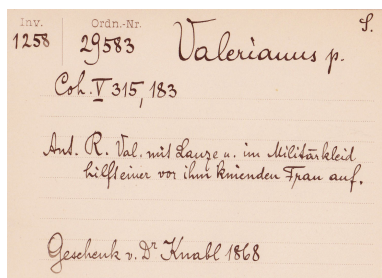 Inv. Ordn.-Nr. S.
1258 29583 Valerianus p.
Coh. V 315, 183
Ant. R. Val. mit Lanze u. im Militärkleid
hilft einer vor ihm knienden Frau auf.
Geschenk v. Dr Knabl 1868